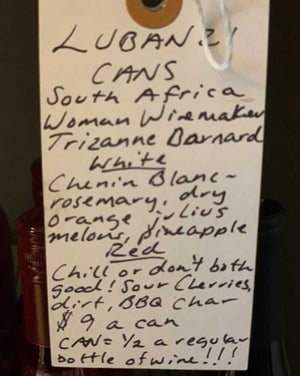 LUBANZI
CANS
South Africa
Woman Winemaker
Trizanne Barnard
White
Chenin Blanc -
rosemary, dry
orange julius
melons, pineapple
Red
Chill or don't both
good! Sour Cherries,
dirt, BBQ Char
$9 a can
CAN = 1/2 a regular
bottle of wine!!!